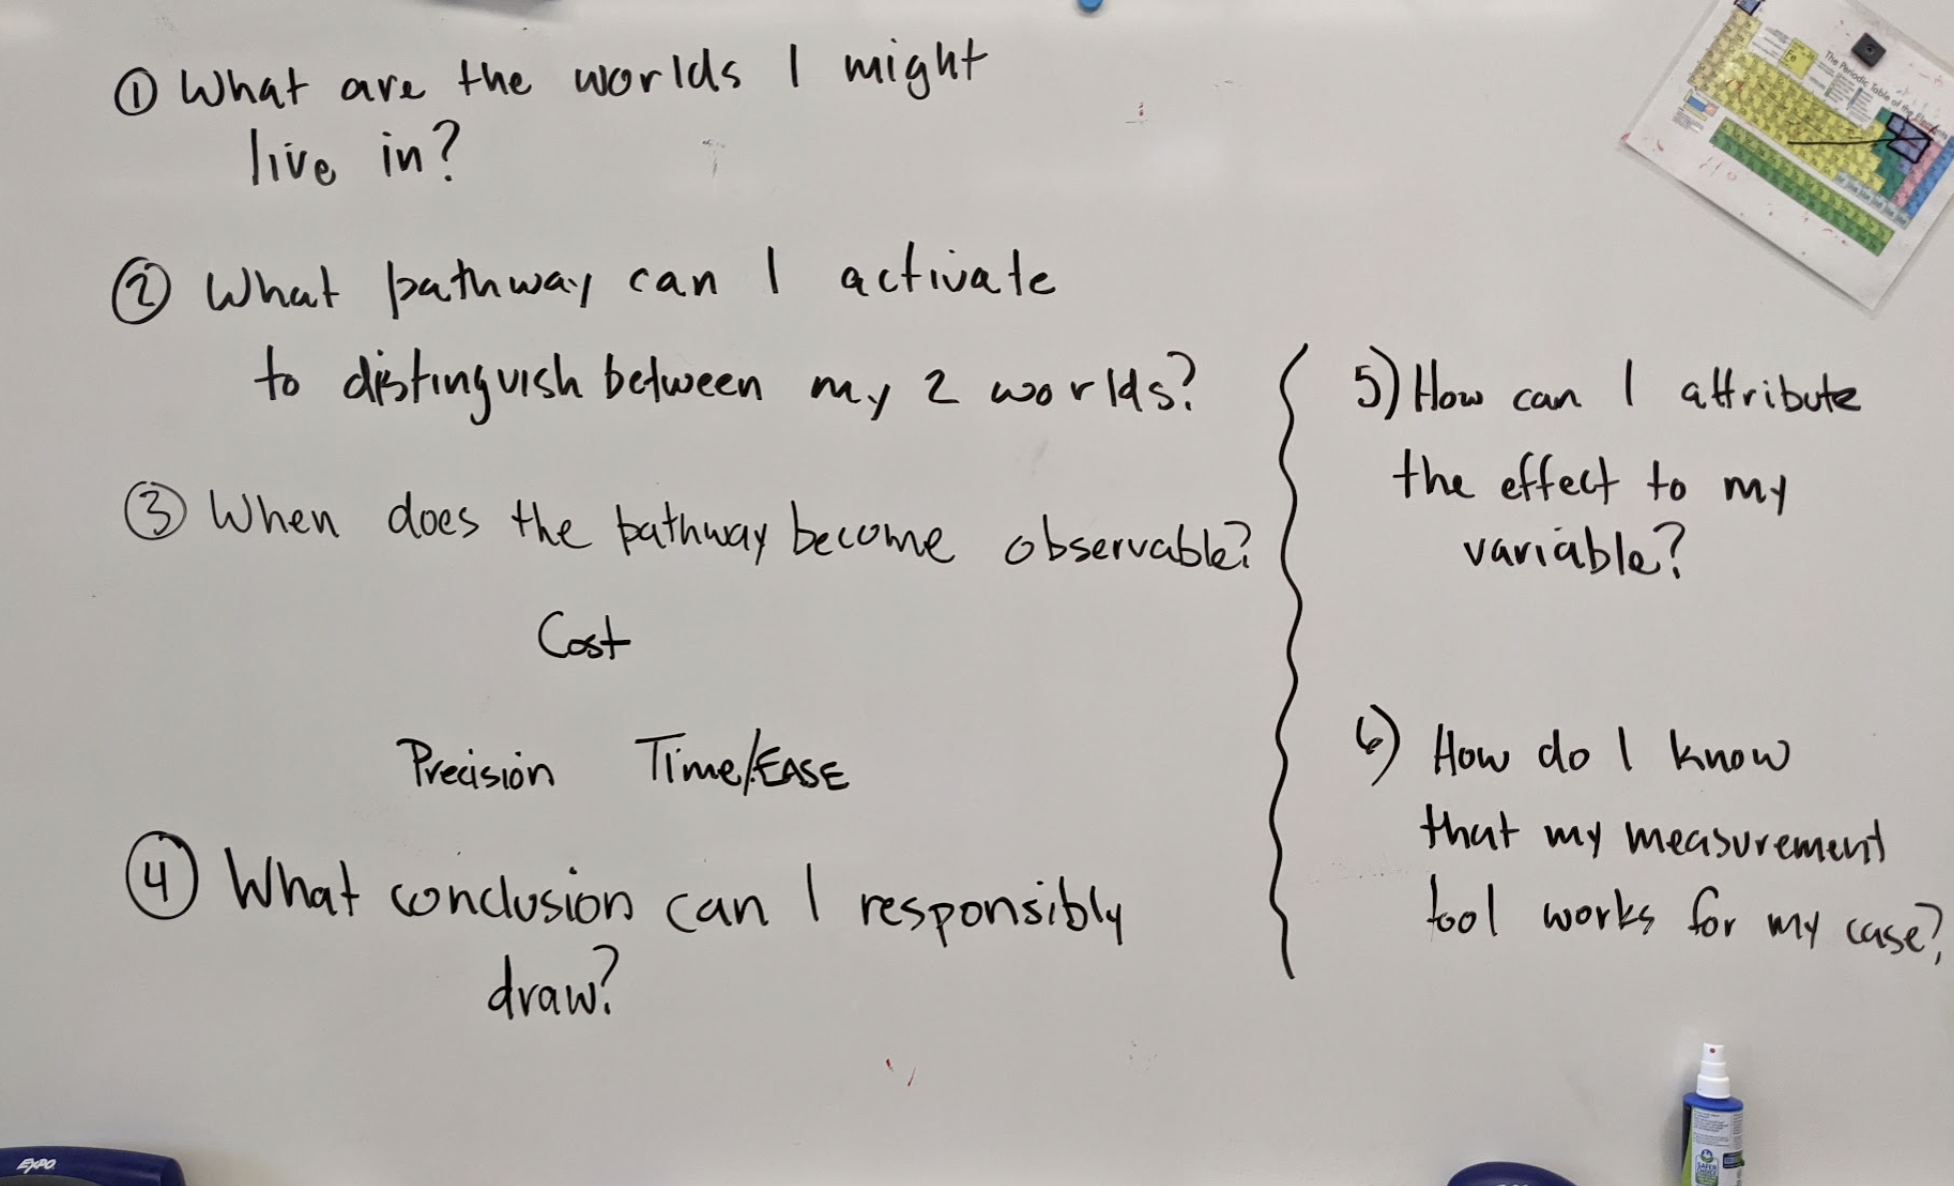 ① What are the worlds I might
live in?
② What pathway can I activate
to distinguish between my 2 worlds?
③ When does the pathway become observable?
Cost
Precision Time/EASE
④ What conclusion can I responsibly
draw?
5) How can I attribute
the effect to my
variable?
6) How do I know
that my measurement
tool works for my case?
The Periodic Table of the Elements
Fe
EXPO
SAFER
CHOICE